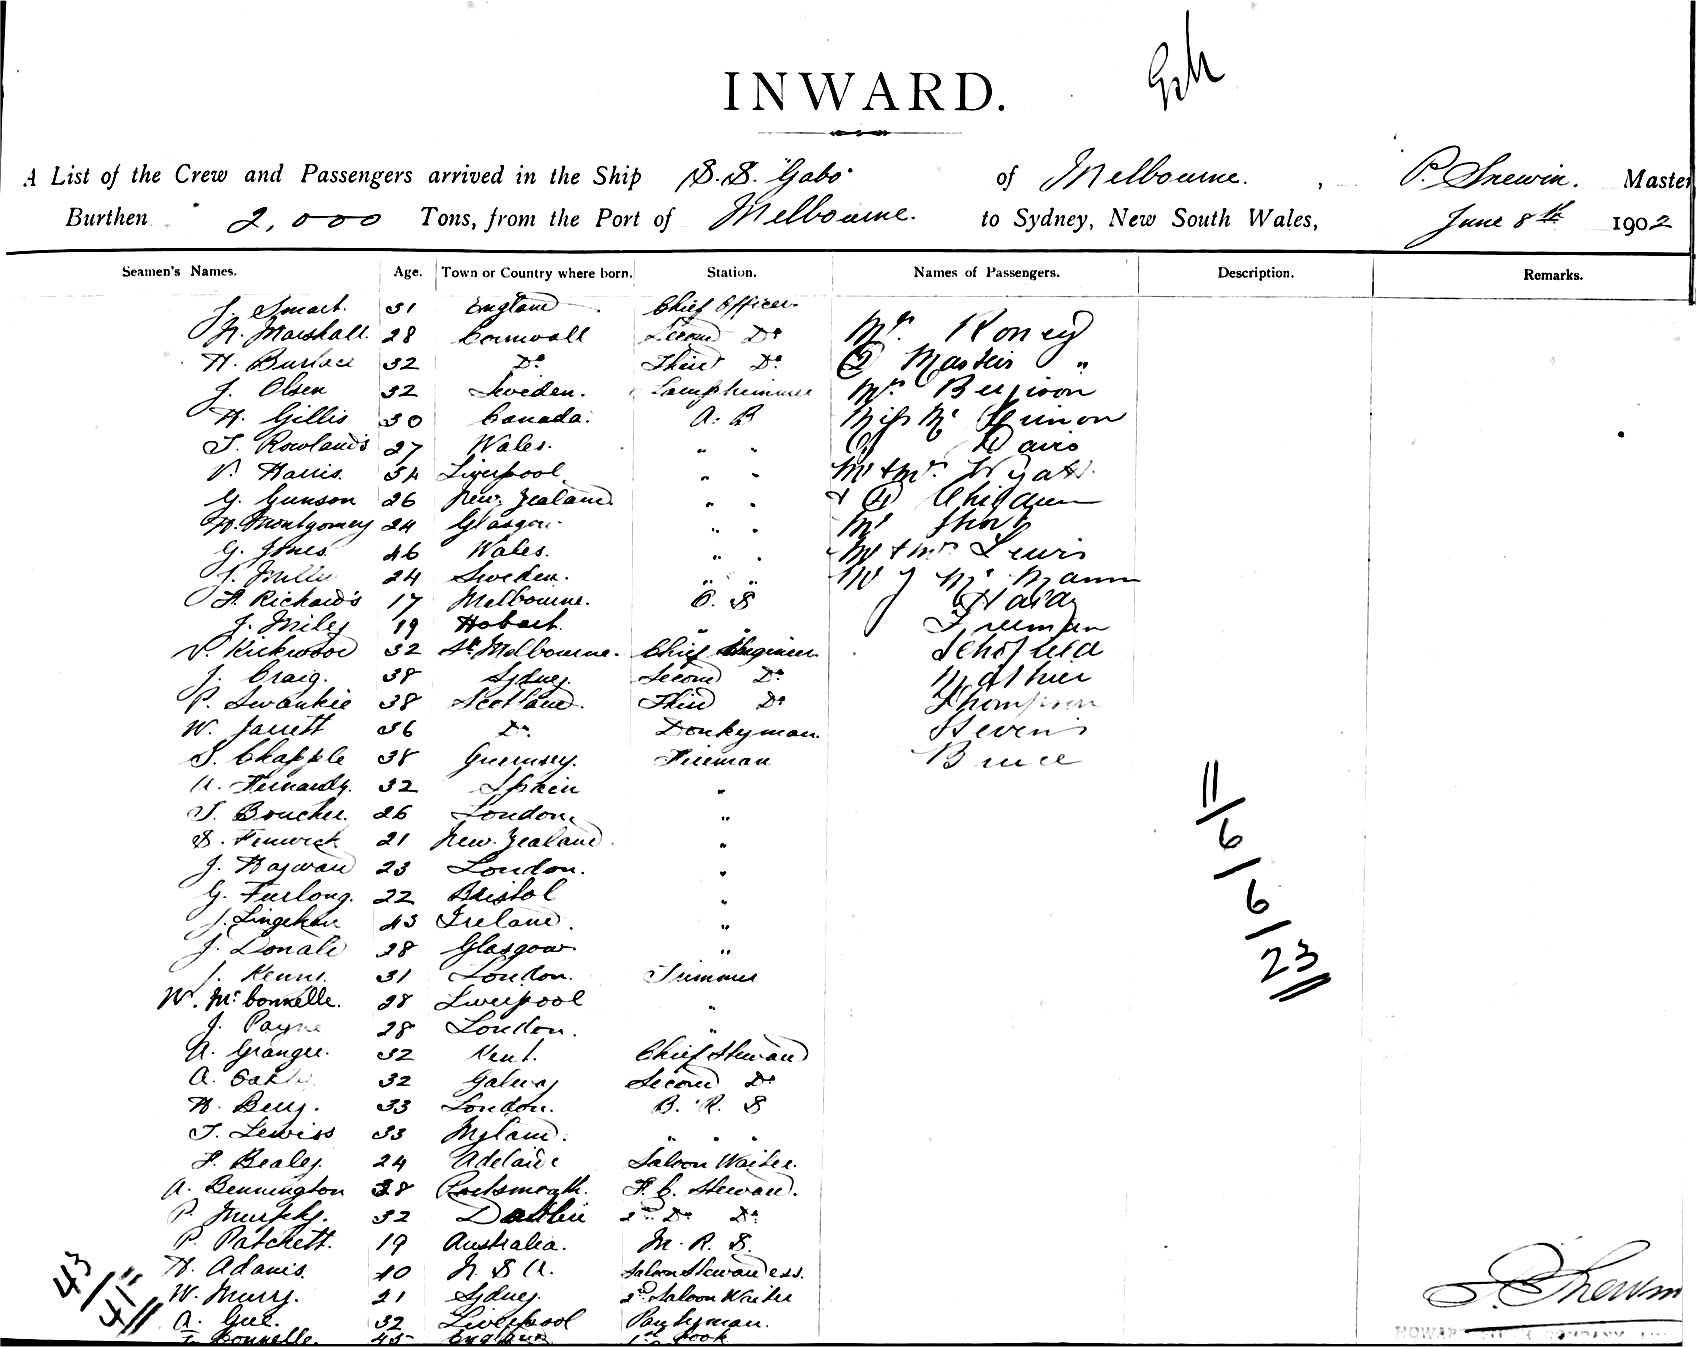 INWARD.
A List of the Crew and Passengers arrived in the Ship S.S. "Gabo" of Melbourne. , P. Snewin. Master
Burthen 2,000 Tons, from the Port of Melbourne. to Sydney, New South Wales, June 8th 1902
Seamen's Names. Age. Town or Country where born. Station. Names of Passengers. Description. Remarks.
J. Smart. 31 England Chief Officer.
N. Marshall. 28 Cornwall Second Do Mrs Roney
H. 32 Do Third Do 2 Masters "
J. Olsen 32 Sweden. Lamptrimmer Mrs
H. Gillis 30 Canada. A. B Miss Mc
T. Rowlands 27 Wales. " " Davis
V. Harris. 34 Liverpool " " Mr & Mrs Wyatt.
G. Gunson 26 New Zealand " " & Children
W. Montgomery 24 Glasgow. " " Mr Short
G. Jones 46 Wales. " " Mr & Mrs Lewis
J. Miller 24 Sweden. " " Mr J Mc Mann
F. Richards 17 Melbourne. O. S Hardy
J. Miley 19 Hobart " " Freeman
V. Kirkwood 32 Sth Melbourne. Chief Engineer Schofield
J. Craig. 38 Sydney Second Do Mather
P. Swankie 38 Scotland. Third Do Thompson
W. Jarrett 36 Do Donkyman. Stevens
S. Chapple 38 Guernsey. Fireman Bruce
A. Fernandy. 32 Spain "
T. Boucher. 26 London. "
S. Fenwick 21 New Zealand. "
J. Hayward 23 London. "
G. Furlong. 22 Bristol "
J. 43 Ireland. "
J. Donald 28 Glasgow "
J. 31 London. Trimmer
W. McConnelle. 28 Liverpool "
J. Payne 28 London. "
A. Granger. 32 Kent. Chief Steward
A. 32 Galway Second Do
H. Berry. 33 London. B. R. S
T. Lewiss 33 " " "
F. Bealey. 24 Adelaide Saloon Waiter.
A. Bennington 38 Portsmouth. F. C. Steward.
P. Murphy. 32 Dublin 2nd Do Do
P. Patchett. 19 Australia. M. R. S.
H. Adams 40 N S W. Saloon Stewardess.
W. Murry. 21 Sydney. 2nd Saloon Waiter
A. 32 Liverpool Pantryman.
Connelle. 45 England 1st Cook
11/6/6/23
43/41
P. Snewin